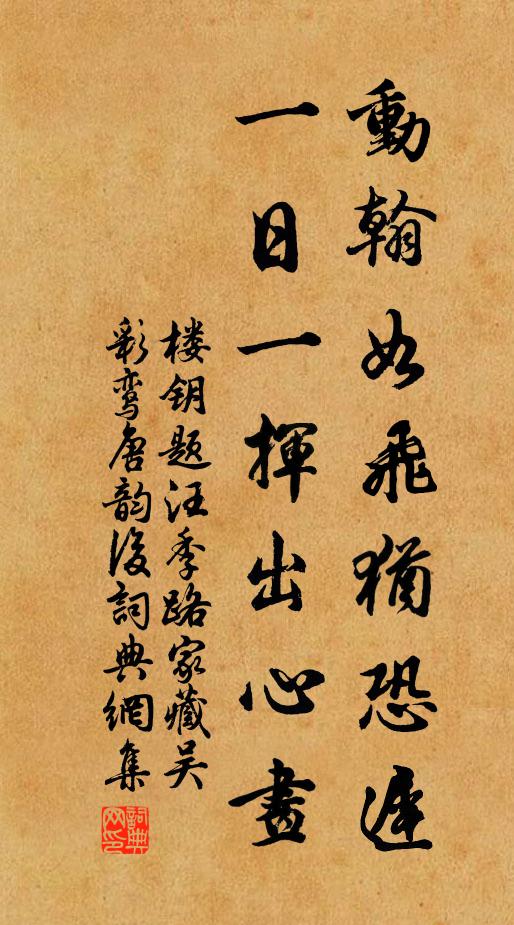 動翰如飛猶恐遲
一日一揮出心畫
楼钥题汪季路家藏吴
彩鸾唐韵后詞典網集
詞典网印